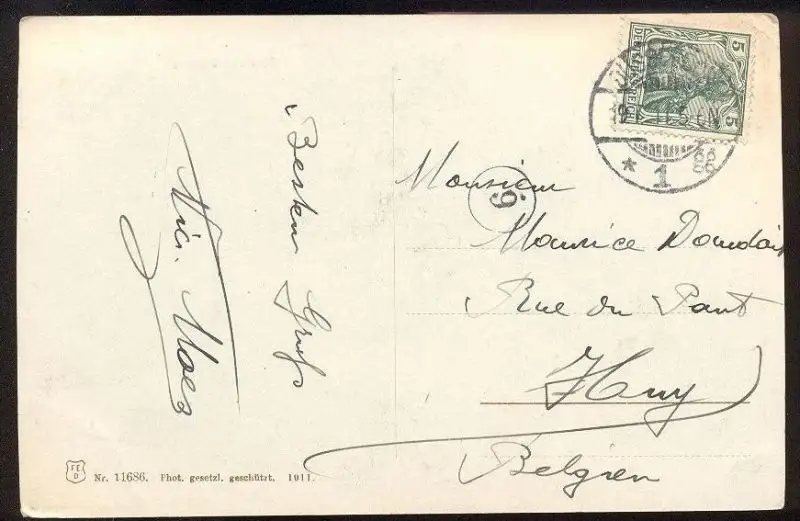 Besten Gruß
Nic. Maes
Monsieur
Maurice Dourdoit
Rue du Pont
Huy
Belgien
5
5
DEUTSCHES REICH
* 1 gg
6
FED
Nr. 11686. Phot. gesetzl. geschützt. 1911.